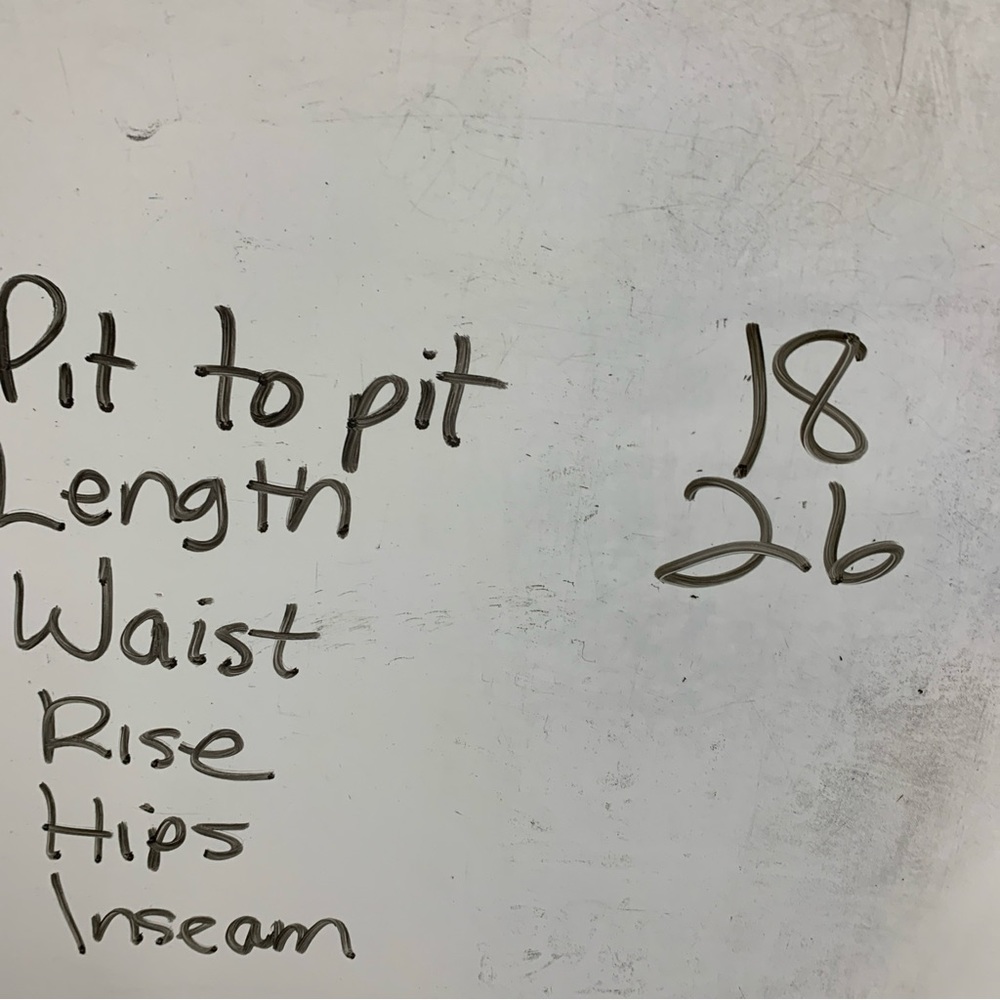 Pit to pit 18
Length 26
Waist
Rise
Hips
Inseam